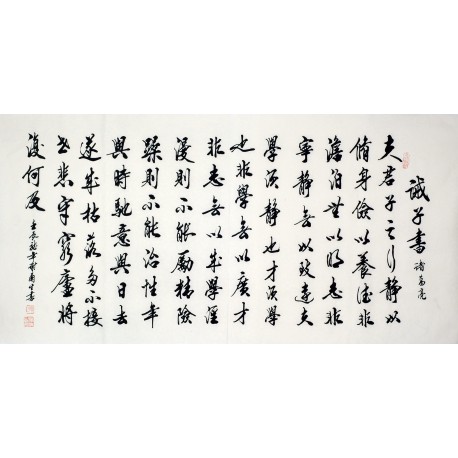 誡子書 諸葛亮
夫君子之行靜以
脩身儉以養德非
澹泊無以明志非
寧靜無以致遠夫
學須靜也才須學
也非學無以廣才
非志無以成學淫
漫則不能勵精險
躁則不能治性年
與時馳意與日去
遂成枯落多不接
世悲守窮廬將
復何及
壬辰龍年